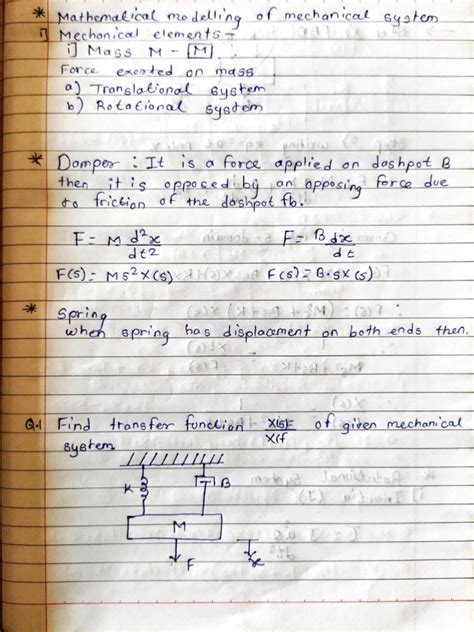 * Mathematical modelling of mechanical system
1) Mechanical elements -
i] Mass M - [M]
Force exerted on mass
a) Translational system
b) Rotational system
* Damper : It is a force applied on dashpot B
then it is opposed by an opposing force due
to friction of the dashpot fb.
F = M d²x/dt2 F = B dx/dt
F(s) = Ms²X(s) F(s) = B·sX(s)
* Spring
when spring has displacement on both ends then,
Q.1 Find transfer function X(s)= / X(f of given mechanical
system
K B
M
F x